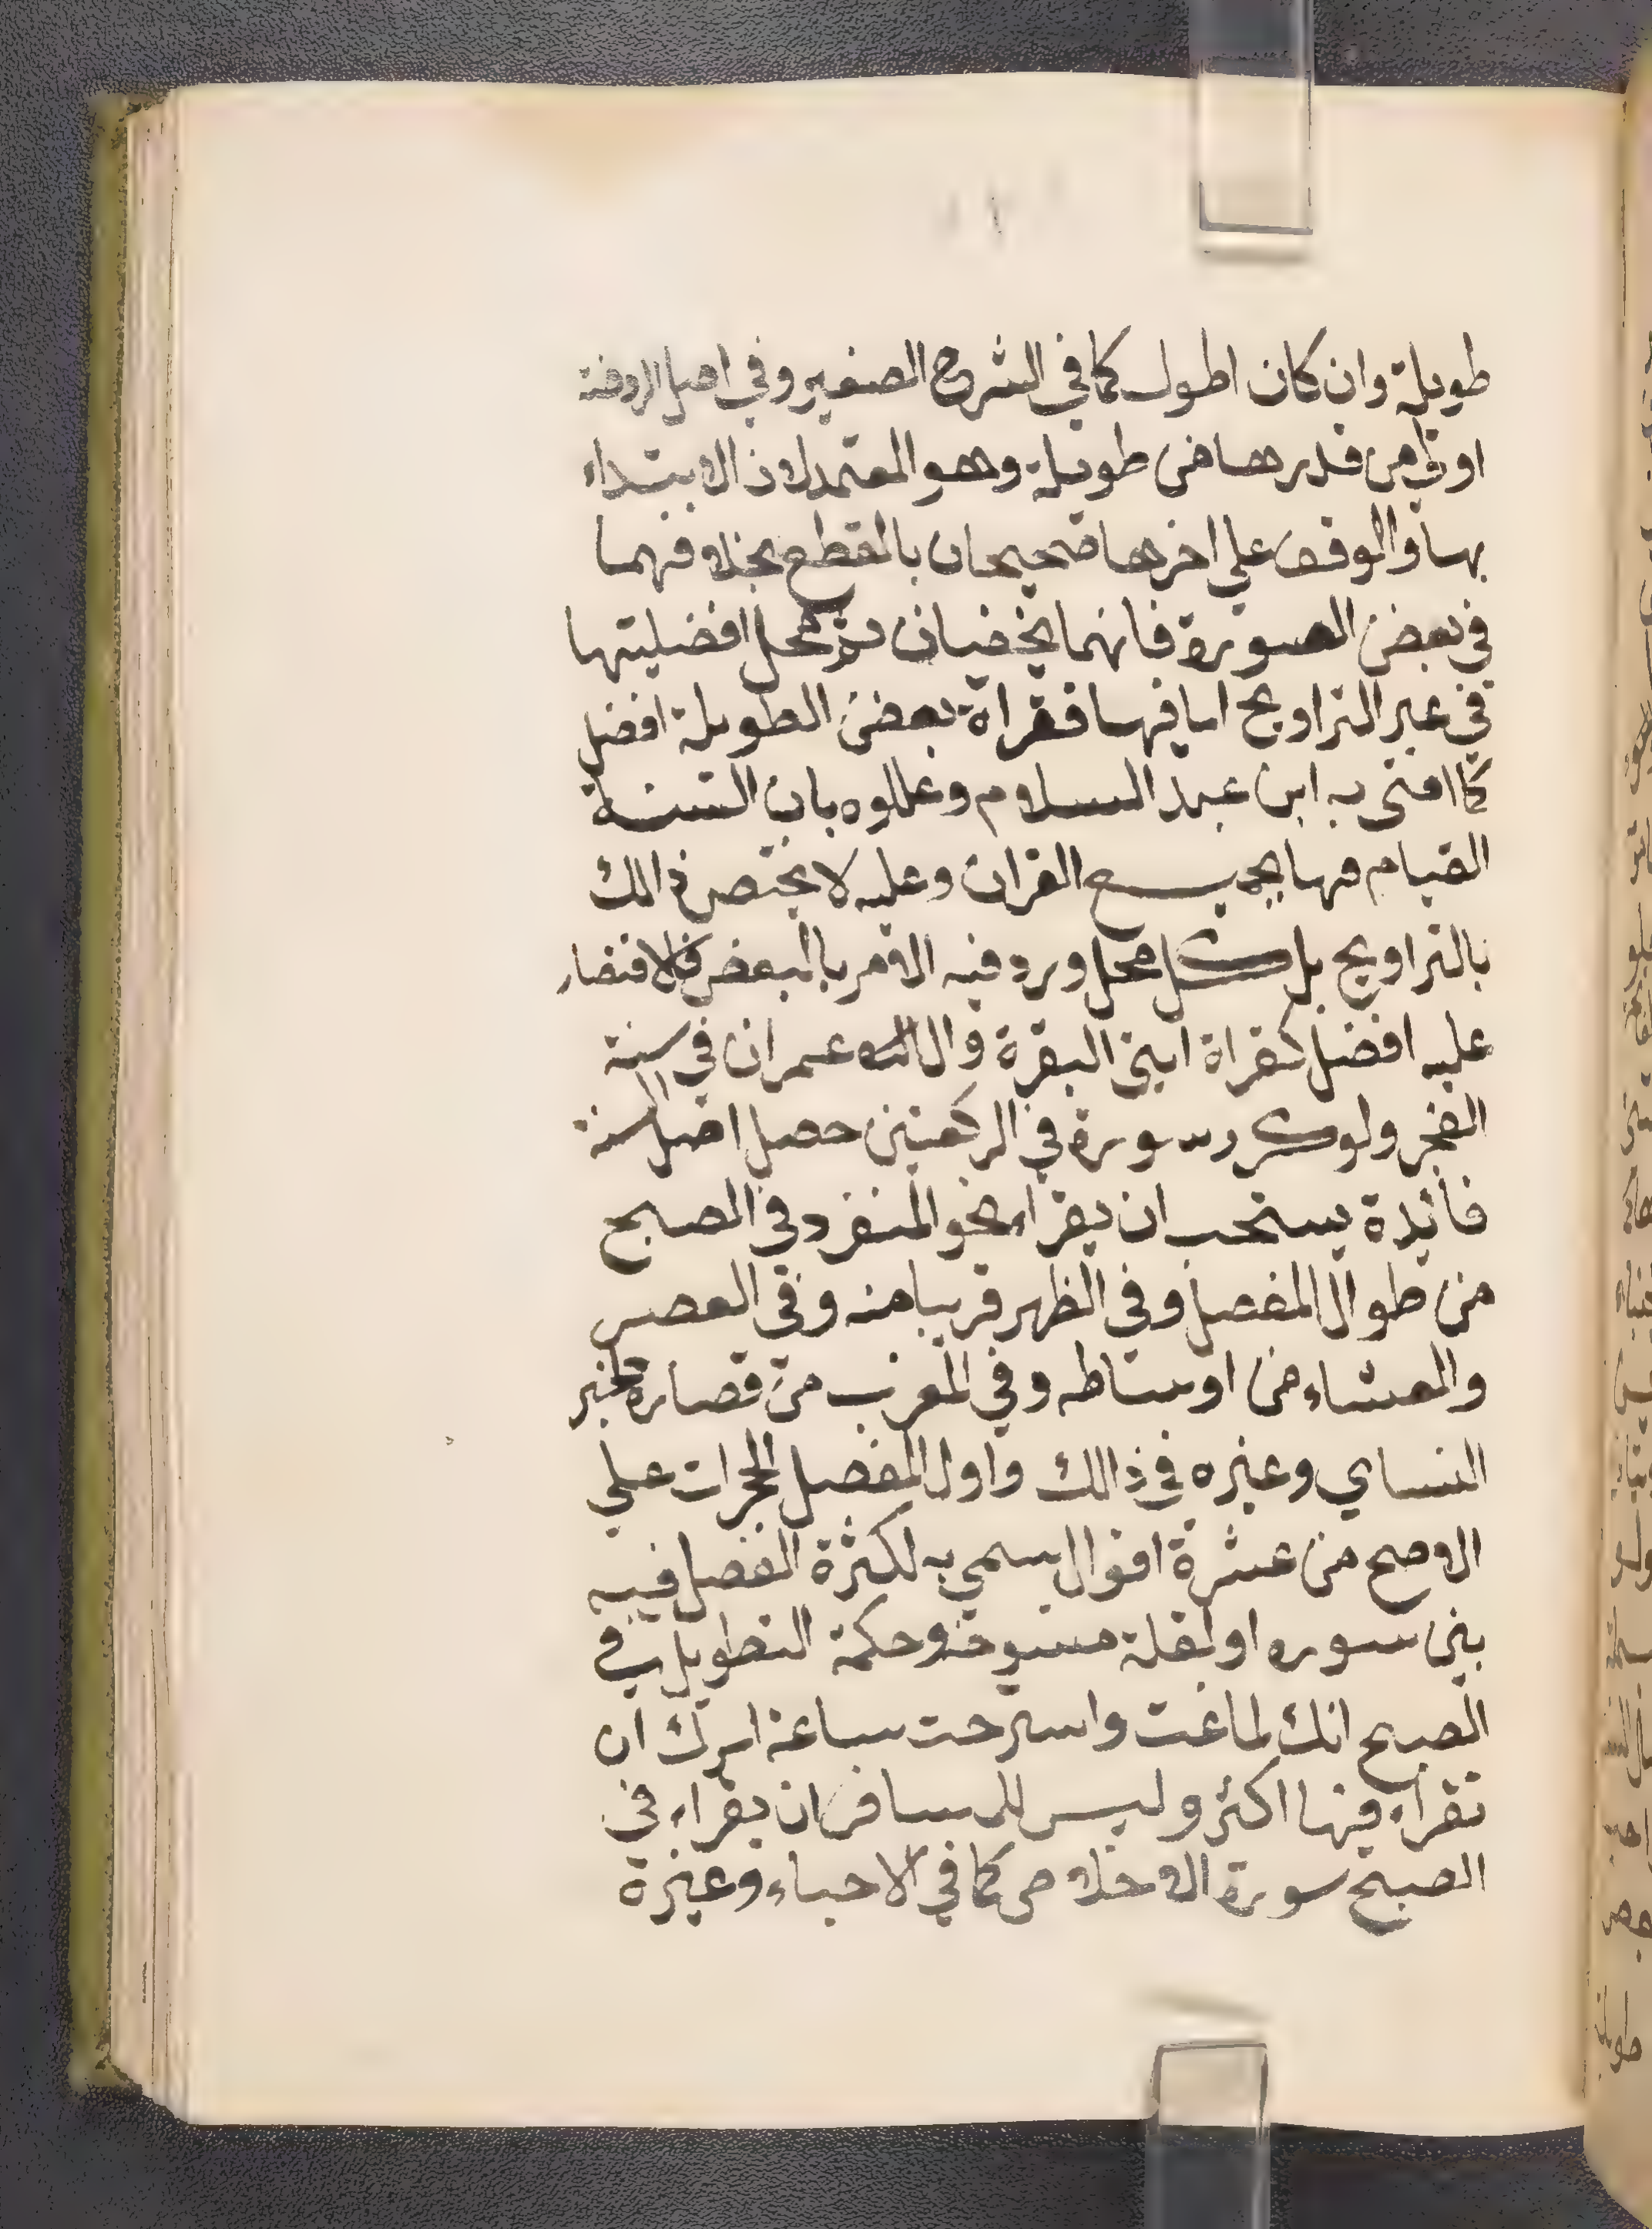 طويلة وان كان اطول كما في الشرح الصغير وفي اصل الروضة
او من قدرها من طويلة وهو المعتمد لان الابتداء
بها والوقف على اخرها صحيحان بالقطع بخلافهما
في بعض الصورة فانهما يخفيان محل افضليتها
في غير التراويح اما فيها فقراة بعض الطويلة افضل
كما افتى به ابن عبد السلام وعللوه بان السنة
القيام فيها بجميع القران وعليه لا يختص ذالك
بالتراويح بل كل محل ورد فيه الامر بالبعض فالاقتصار
عليه افضل كقراة ايتي البقرة وال عمران في سنة
الفجر ولو كرر سورة في الركعتين حصل اصل السنة
فائدة يستحب ان يقرا نحو المنفرد في الصبح
من طوال المفصل وفي الظهر قريبا منه وفي العصر
والعشاء من اوساطه وفي المغرب من قصاره لخبر
النساي وغيره في ذالك واول المفصل الحجرات على
الاصح من عشرة اقوال سمي به لكثرة الفصل فيه
بين سوره او لقلة منسوخه وحكمة التطويل في
الصبح انك لما نمت واسترحت ساعة امرك ان
تقراء فيها اكثر وليس للمسافر ان يقراء في
الصبح سورة الاخلاص كما في الاحياء وغيرة